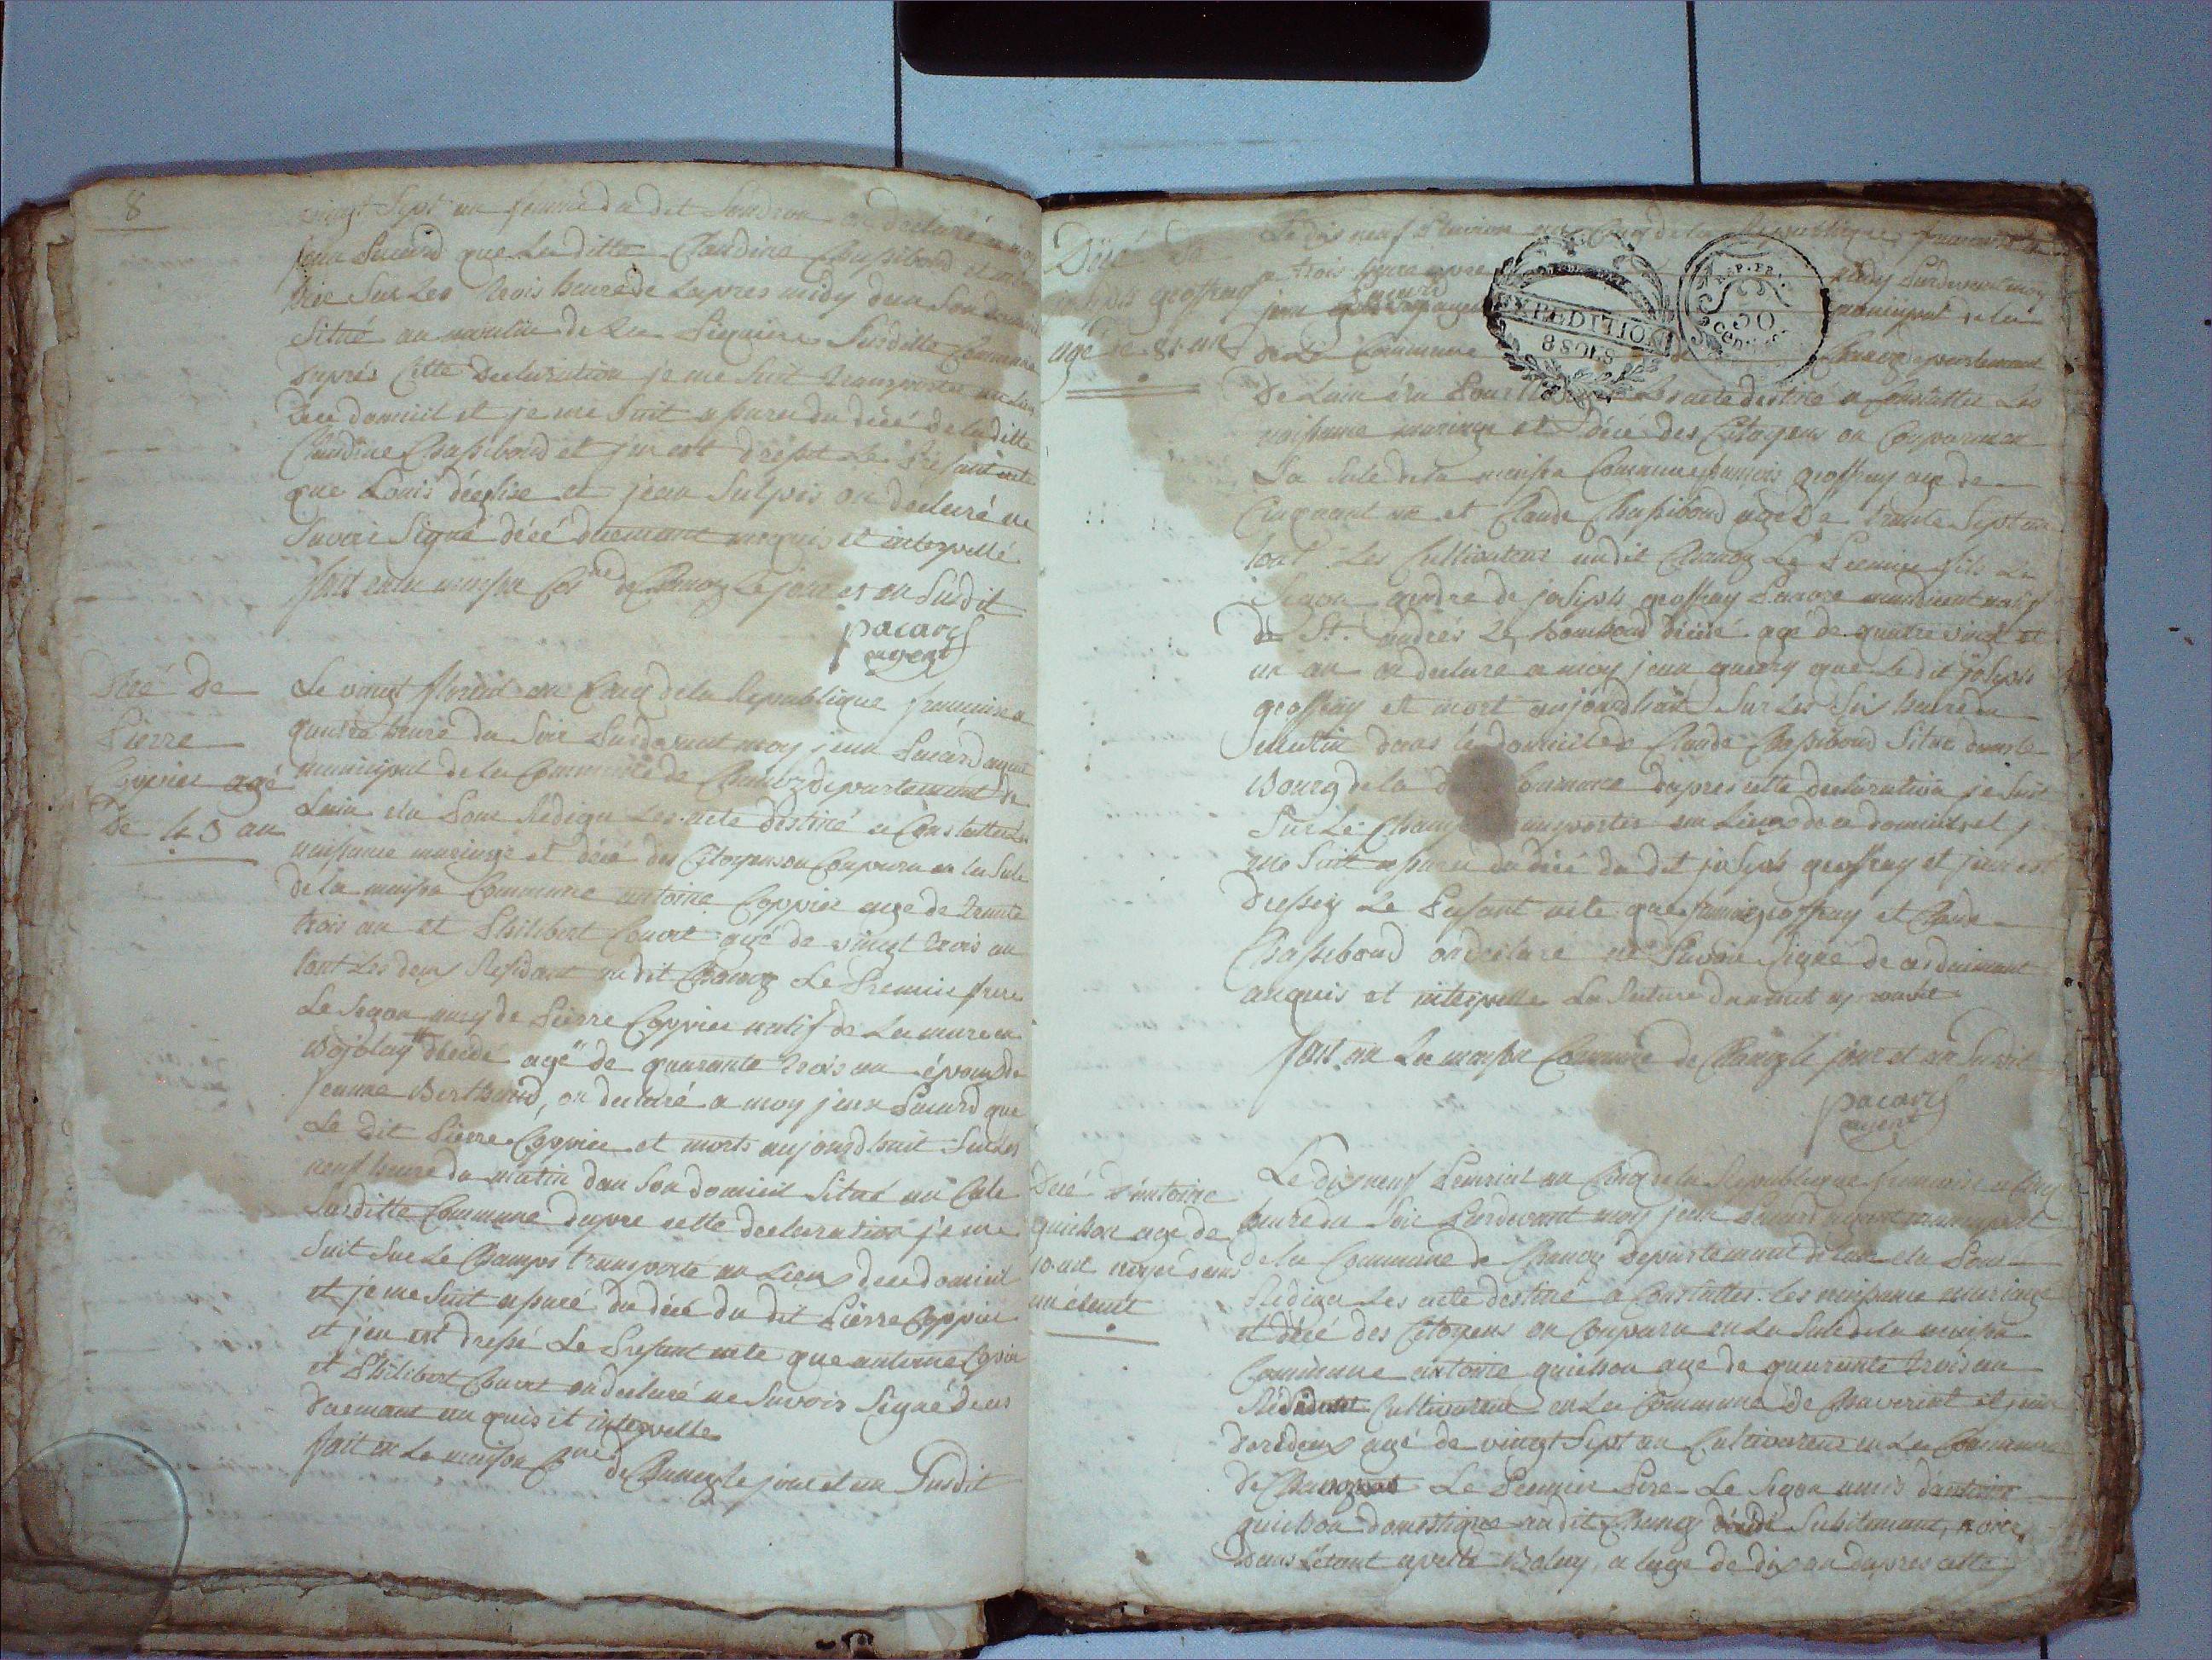 8
vingt Sept an femme du dit Sondron on declaré a moy
jean Pacard que la ditte Claudine Chassiboud et morte
hier Sur les trois heure de lapres midy dan Son domicile
Situé au moulin de la Susditte Commune
dapres Cette declaration je me Suit transporté au lieu
de ce domicil et je me Suit aparu du décé de la ditte
Claudine Chassiboud et jen est dressé Le Présant acte
que Louis déeglise et jean Sulpis on declaré ne
Savoir Signé décé duemant anquis et interpellé
fait en la maison Cone de Chanoz Le jour et an Susdit
pacard
agent
Décé De
Pierre
Coppier agé
De 43 an
Le vingt floréal an Cinq de la Republique francaise a
quatre heure du Soir Pardevant moy jean Pacard agent
municipal de la Commune de Chanoz departement de
Lain elu Pour Rediger Les acte destiné a Constatter Les
naissance mariage et décé des Citoyens on Comparu en la Sale
de la maison Commune antoine Coppier age de trante
trois an et Philibert Convert agé de vingt trois an
tout Les deux Residant audit Chanoz Le Premier frere
Le Segon amy de Pierre Coppier natif de Lamure en
Bojolay décédé agé de quarante trois an époux de
jeanne Berthaud, on declaré a moy jean Pacard que
Le dit Pierre Coppier et morts aujourdhuit Sur les
neuf heure du matin dan Son domicil Situé au
Susditte Commune dapre cette declaration je me
Suit Sur Le Champs transporté au Lieux de ce domicil
et je me Suit aparé du décé du dit Pierre Coppier
et jen est dressé Le Presant acte que antoine Copier
et Philibert Convert on declaré ne Savoir Signé de ces
duemant anquis et interpelle
fait en La maison Cone de Chanoz le jour et an Susdit
Décé De
joseph geoffray
agé de 81 an
Le dix neuf Pluviose an Cinq de la Republique francaise
a trois heure apre midy Pardevant moy
jean Pacard municipal de la
de la Commune de Chanoz departemant
EXPEDITION
REP. FR.
50
De Lain élu Pour Les acte destiné a Constatter Les
naissance mariage et décé des Citoyens on Comparu en
La Sale de la maison Commune francois geoffray age de
Cinquant an et Claude Chassiboud agé De trante Sept an
tout Les Cultivateur audit Chanoz Le Premier fils Le
Segon gendre de joseph geoffray natif
de St. andrés Le bouchoud décédé agé de quatre vingt et
un an on declare a moy jean que Le dit joseph
geoffray et mort aujourdhuit Sur Les Six heure du
matin dans le domicile de Claude Chassiboud Situé dans le
Bourg de la Commune dapres cette declaration je Suit
Sur Le Champ transporter au Lieux de ce domicile et je
me Suit aparu du décé du dit joseph geoffray et jen est
dressez Le Presant acte que francois geoffray et Claude
Chassiboud on declare ne Savoir Signé de ce duemant
anquis et interpelle
fait en La maison Commune de Chanoz le jour et an Susdit
pacard
agent
Décé Dantoine
guichon age de
10 an noyé dans
un étant
Le dix neuf Prairial an Cinq de la Republique francaise a Cinq
heure du Soir Pardevant moy jean Pacard agent municipal
de la Commune de Chanoz Departemant de Lain elu Pour
Rediger Les acte destiné a Constatter Les naissance mariage
et décé des Citoyens on Comparu en La Sale de la maison
Commune antoine guichon age de quarante trois an
Residant Cultivateur en La Commune de Chaveriat et
age de vingt Sept an Cultivateur en La Commune
de Le Premier Pere Le Segon amis dantoine
guichon domestique audit Chanoz décédé Subitemant, noyé
dans Létant apellé a lage de dix an dapres cette